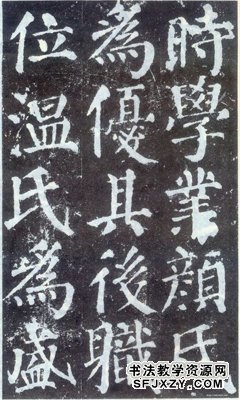 時學業顔氏
為優其後職
位温氏為盛
书法教学资源网
SFJXZY.COM